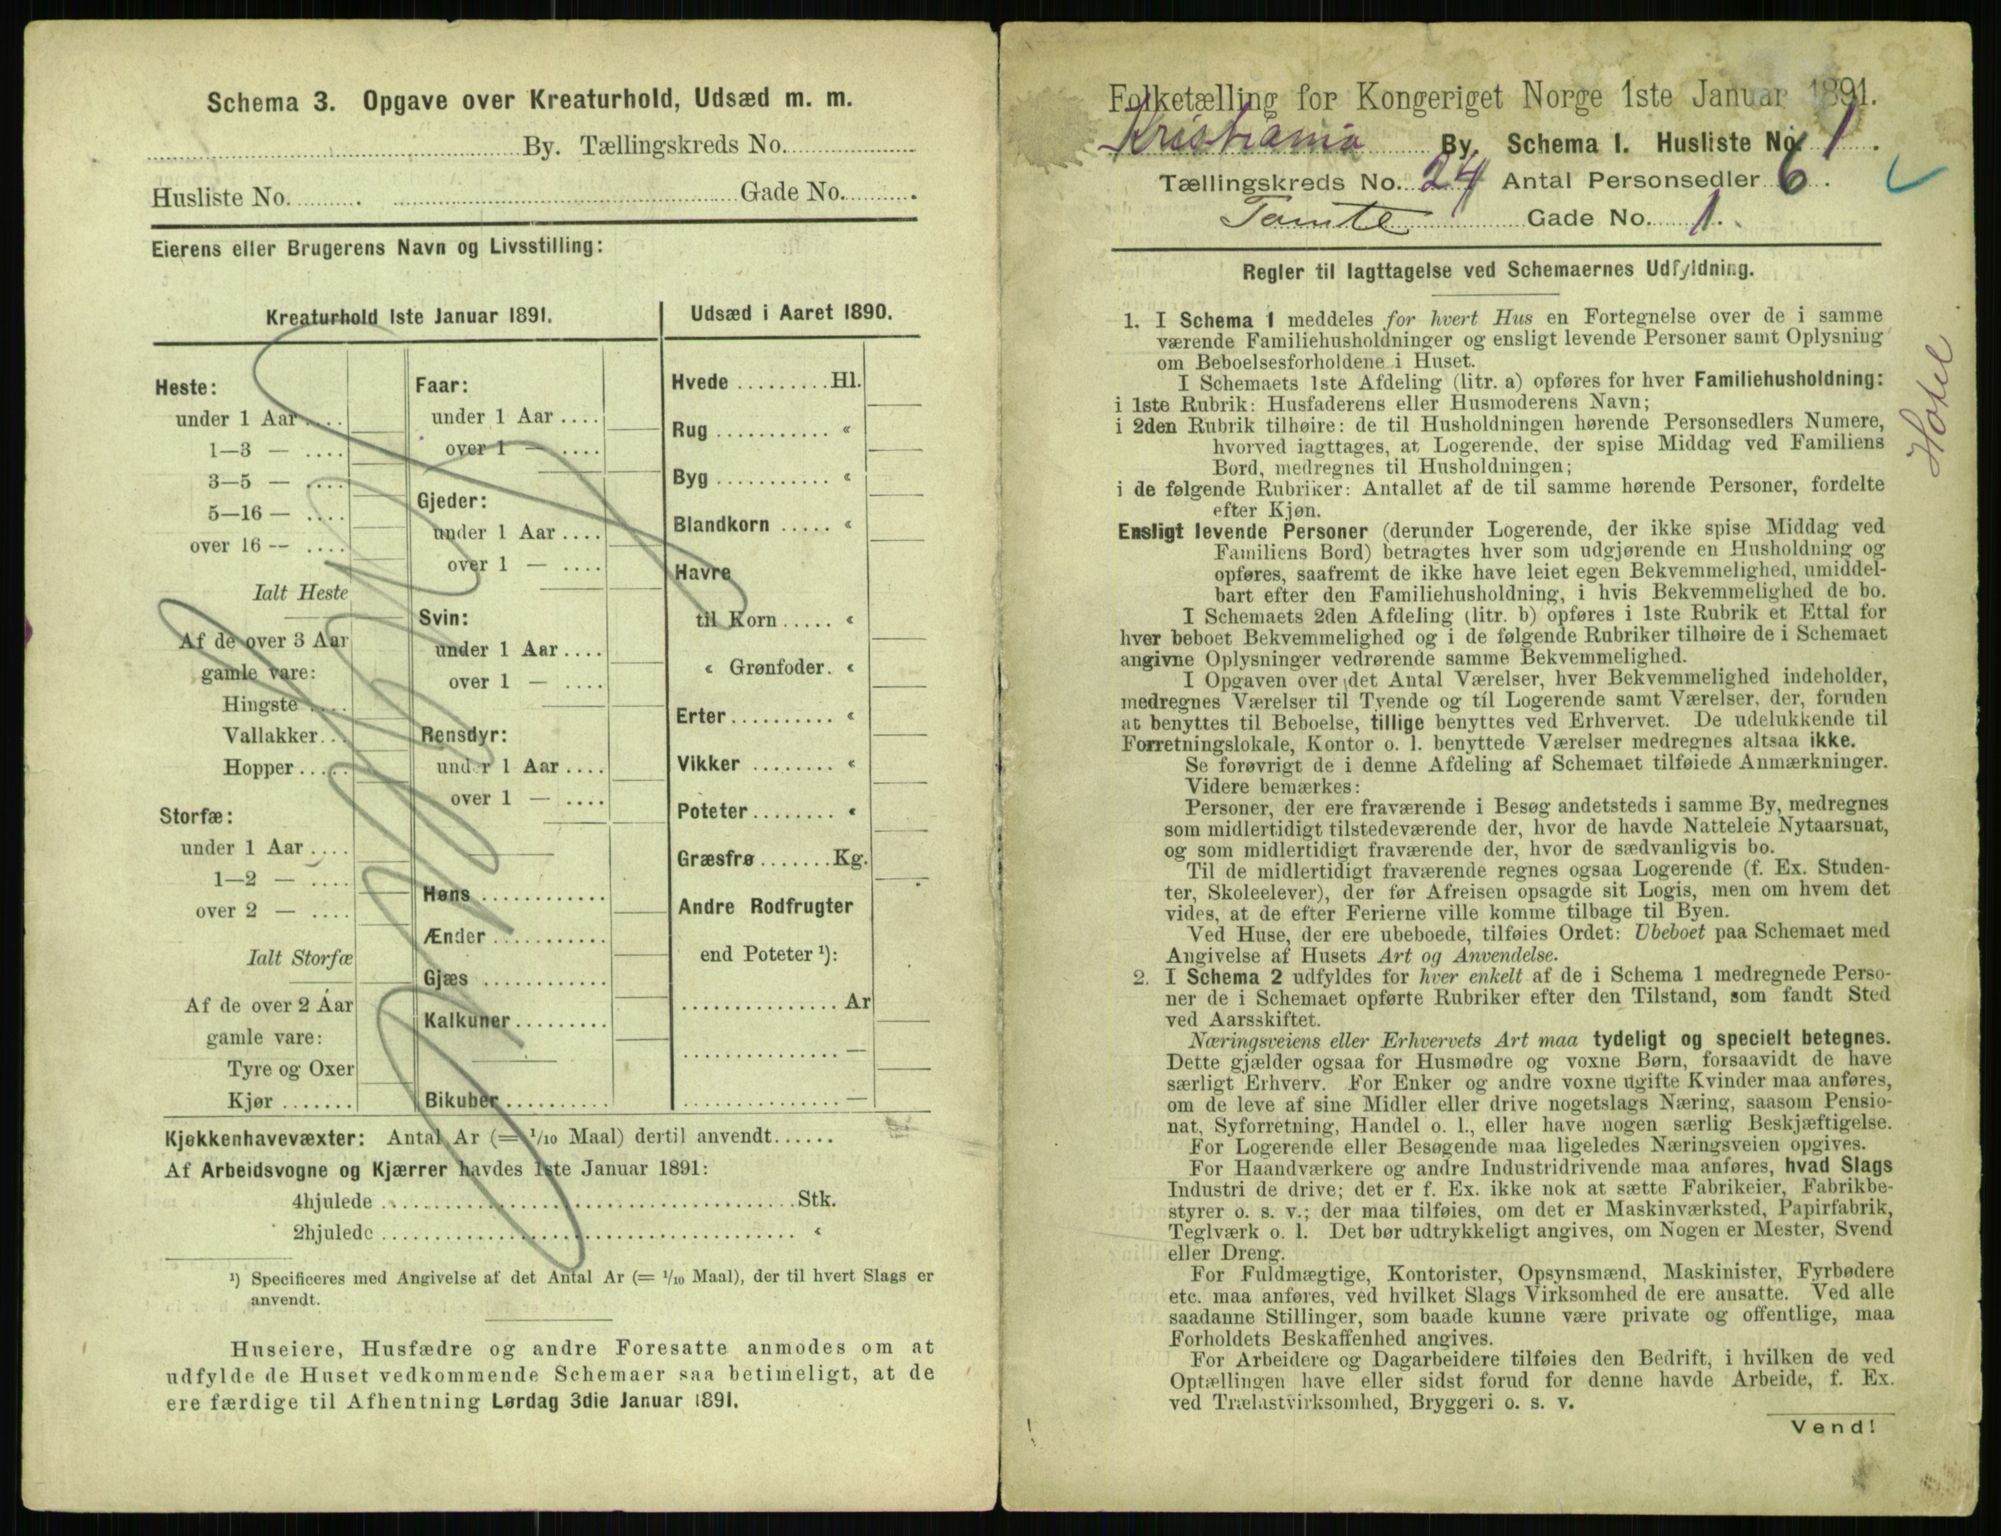 Schema 3. Opgave over Kreaturhold, Udsæd m. m.
By. Tællingskreds No.
Husliste No. Gade No.
Eierens eller Brugerens Navn og Livsstilling:
Kreaturhold 1ste Januar 1891.
Heste:
under 1 Aar
1—3 —
3—5 —
5—16 —
over 16 —
Ialt Heste
Af de over 3 Aar
gamle vare:
Hingste
Vallakker
Hopper
Storfæ:
under 1 Aar
1—2 —
over 2 —
Ialt Storfæ
Af de over 2 Aar
gamle vare:
Tyre og Oxer
Kjør
Faar:
under 1 Aar
over 1 —
Gjeder:
under 1 Aar
over 1 —
Svin:
under 1 Aar
over 1 —
Rensdyr:
und r 1 Aar
over 1 —
Høns
Ænder
Gjæs
Kalkuner
Bikuber
Udsæd i Aaret 1890.
Hvede Hl.
Rug «
Byg «
Blandkorn «
Havre
til Korn «
« Grønfoder. «
Erter «
Vikker «
Poteter «
Græsfrø Kg.
Andre Rodfrugter
end Poteter ¹):
Ar
—
—
Kjøkkenhavevæxter: Antal Ar (= 1/10 Maal) dertil anvendt
Af Arbeidsvogne og Kjærrer havdes 1ste Januar 1891:
4hjulede Stk.
2hjulede «
¹) Specificeres med Angivelse af det Antal Ar (= 1/10 Maal), der til hvert Slags er
anvendt.
Huseiere, Husfædre og andre Foresatte anmodes om at
udfylde de Huset vedkommende Schemaer saa betimeligt, at de
ere færdige til Afhentning Lørdag 3die Januar 1891.
Folketælling for Kongeriget Norge 1ste Januar 1891.
Kristiania By. Schema I. Husliste No. 1.
Tællingskreds No. 24 Antal Personsedler 6.
Tomte Gade No. 1.
Regler til Iagttagelse ved Schemaernes Udfyldning.
1. I Schema 1 meddeles for hvert Hus en Fortegnelse over de i samme
værende Familiehusholdninger og ensligt levende Personer samt Oplysning
om Beboelsesforholdene i Huset.
I Schemaets 1ste Afdeling (litr. a) opføres for hver Familiehusholdning:
i 1ste Rubrik: Husfaderens eller Husmoderens Navn;
i 2den Rubrik tilhøire: de til Husholdningen hørende Personsedlers Numere,
hvorved iagttages, at Logerende, der spise Middag ved Familiens
Bord, medregnes til Husholdningen;
i de følgende Rubriker: Antallet af de til samme hørende Personer, fordelte
efter Kjøn.
Ensligt levende Personer (derunder Logerende, der ikke spise Middag ved
Familiens Bord) betragtes hver som udgjørende en Husholdning og
opføres, saafremt de ikke have leiet egen Bekvemmelighed, umiddel-
bart efter den Familiehusholdning, i hvis Bekvemmelighed de bo.
I Schemaets 2den Afdeling (litr. b) opføres i 1ste Rubrik et Ettal for
hver beboet Bekvemmelighed og i de følgende Rubriker tilhøire de i Schemaet
angivne Oplysninger vedrørende samme Bekvemmelighed.
I Opgaven over det Antal Værelser, hver Bekvemmelighed indeholder,
medregnes Værelser til Tyende og til Logerende samt Værelser, der, foruden
at benyttes til Beboelse, tillige benyttes ved Erhvervet. De udelukkende til
Forretningslokale, Kontor o. l. benyttede Værelser medregnes altsaa ikke.
Se forøvrigt de i denne Afdeling af Schemaet tilføiede Anmærkninger.
Videre bemærkes:
Personer, der ere fraværende i Besøg andetsteds i samme By, medregnes
som midlertidigt tilstedeværende der, hvor de havde Natteleie Nytaarsnat,
og som midlertidigt fraværende der, hvor de sædvanligvis bo.
Til de midlertidigt fraværende regnes ogsaa Logerende (f. Ex. Studen-
ter, Skoleelever), der før Afreisen opsagde sit Logis, men om hvem det
vides, at de efter Ferierne ville komme tilbage til Byen.
Ved Huse, der ere ubeboede, tilføies Ordet: Ubeboet paa Schemaet med
Angivelse af Husets Art og Anvendelse.
2. I Schema 2 udfyldes for hver enkelt af de i Schema 1 medregnede Perso-
ner de i Schemaet opførte Rubriker efter den Tilstand, som fandt Sted
ved Aarsskiftet.
Næringsveiens eller Erhvervets Art maa tydeligt og specielt betegnes.
Dette gjælder ogsaa for Husmødre og voxne Børn, forsaavidt de have
særligt Erhverv. For Enker og andre voxne ugifte Kvinder maa anføres,
om de leve af sine Midler eller drive nogetslags Næring, saasom Pensio-
nat, Syforretning, Handel o. l., eller have nogen særlig Beskjæftigelse.
For Logerende eller Besøgende maa ligeledes Næringsveien opgives.
For Haandværkere og andre Industridrivende maa anføres, hvad Slags
Industri de drive; det er f. Ex. ikke nok at sætte Fabrikeier, Fabrikbe-
styrer o. s. v.; der maa tilføies, om det er Maskinværksted, Papirfabrik,
Teglværk o. l. Det bør udtrykkeligt angives, om Nogen er Mester, Svend
eller Dreng.
For Fuldmægtige, Kontorister, Opsynsmænd, Maskinister, Fyrbødere
etc. maa anføres, ved hvilket Slags Virksomhed de ere ansatte. Ved alle
saadanne Stillinger, som baade kunne være private og offentlige, maa
Forholdets Beskaffenhed angives.
For Arbeidere og Dagarbeidere tilføies den Bedrift, i hvilken de ved
Optællingen have eller sidst forud for denne havde Arbeide, f. Ex.
ved Trælastvirksomhed, Bryggeri o. s. v.
Vend!
Hotel